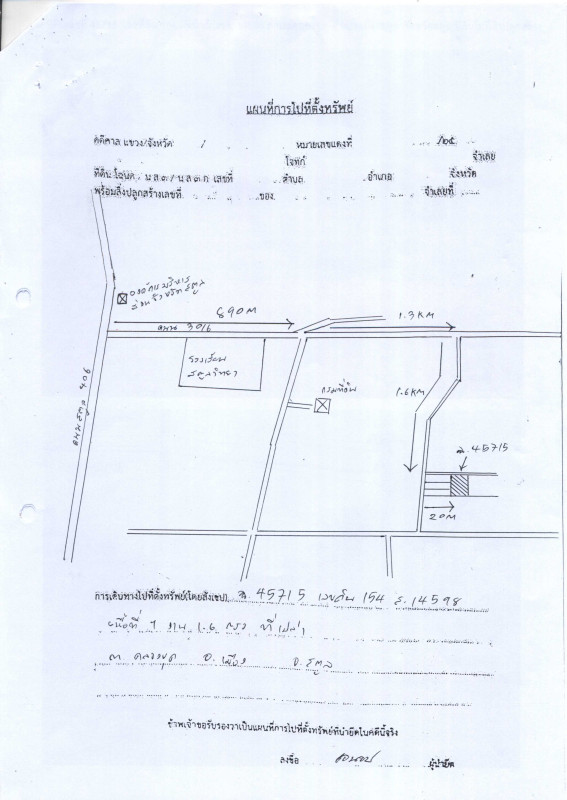 แผนที่การไปที่ตั้งทรัพย์
คดีศาล แขวง/จังหวัด / หมายเลขแดงที่ /๒๕
โจทก์ จำเลย
ที่ดิน โฉนด น.ส.๓ / น.ส.๓ ก. เลขที่ ตำบล อำเภอ จังหวัด
พร้อมสิ่งปลูกสร้างเลขที่ ของ จำเลยที่
องค์การบริหาร
ส่วนจังหวัดสตูล
890M
1.3 KM
ถนน 3016
โรงเรียน
สตูลวิทยา
ถนนสตูล 406
กรมที่ดิน
1.6KM
ฉ. 45715
20M
การเดินทางไปที่ตั้งทรัพย์(โดยสังเขป) ฉ 45715 เลขดิน 154 ร. 14598
เนื้อที่ 1 งาน 1.6
ต. คลองขุด อ. เมือง จ. สตูล
ข้าพเจ้าขอรับรองว่าเป็นแผนที่การไปที่ตั้งทรัพย์ที่นำยึดในคดีนี้จริง
ลงชื่อ ผู้นำยึด